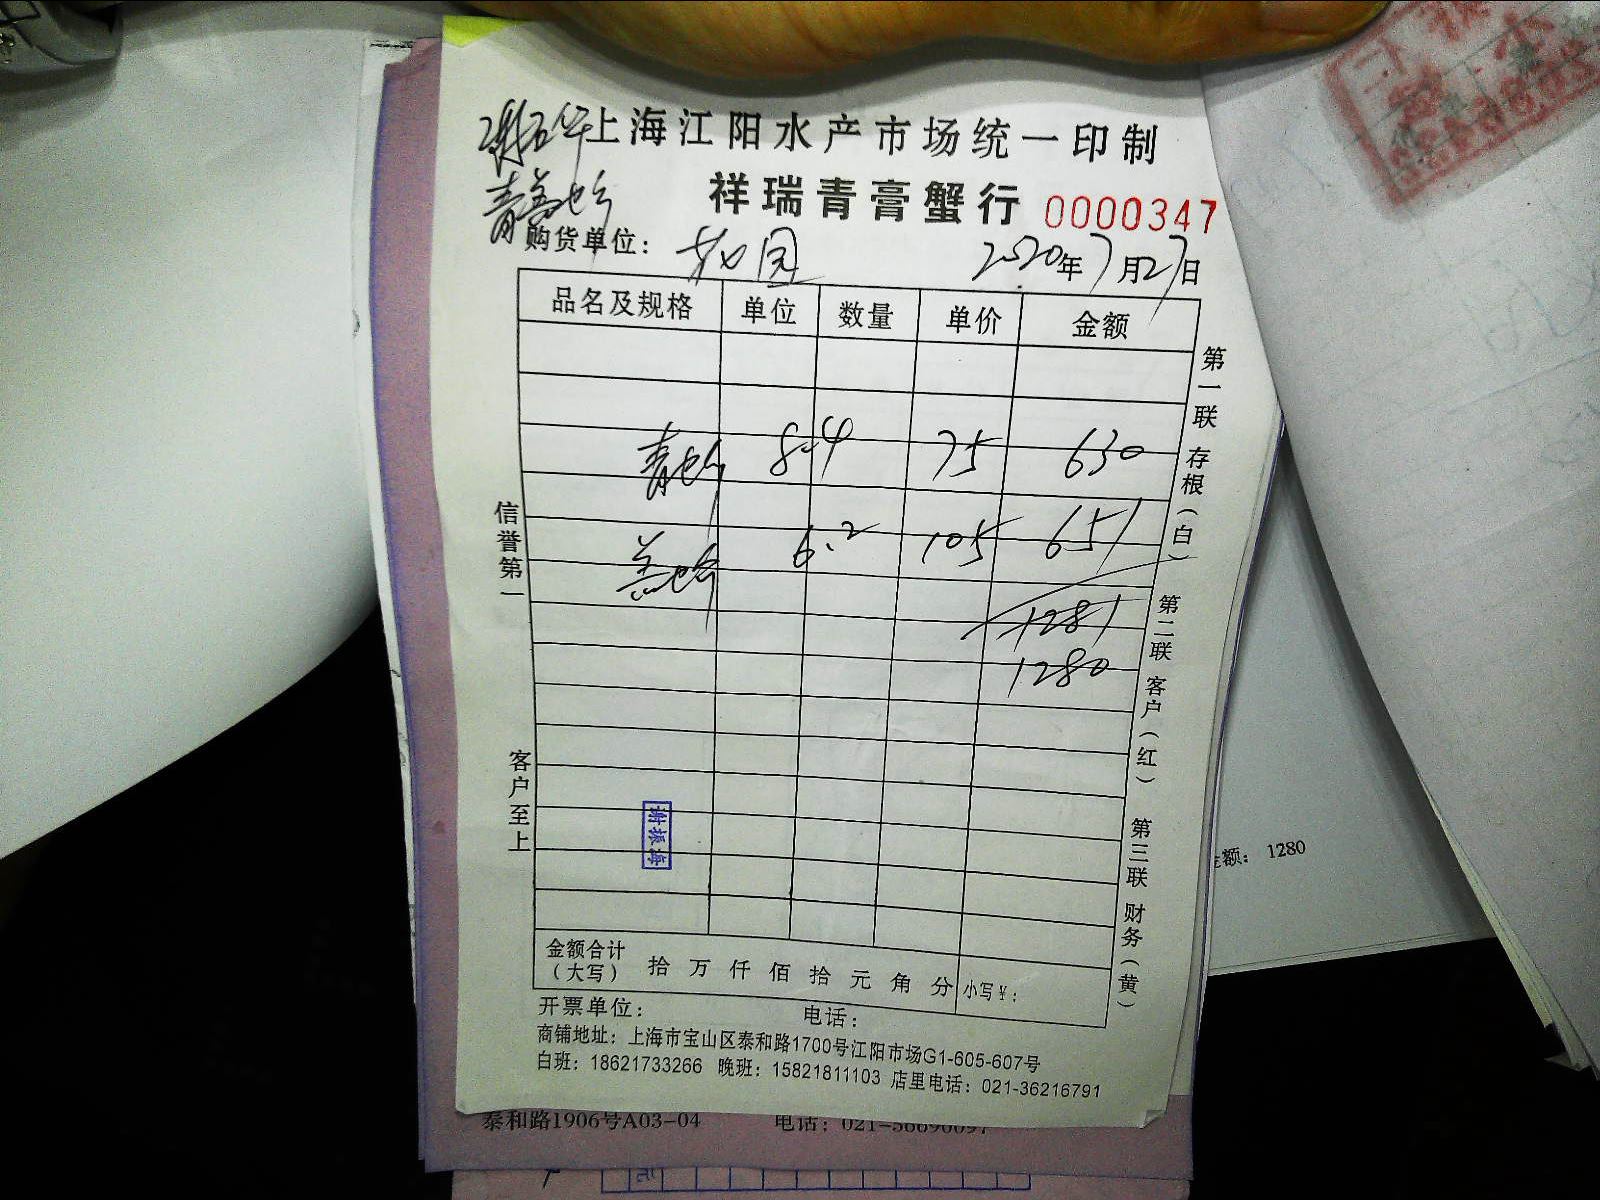 上海江阳水产市场统一印制
祥瑞青膏蟹行 0000347
购货单位： 2020年7月27日
品名及规格 单位 数量 单价 金额
青 8.4 75 630
6.2 105 651
1281
1280
信誉第一
客户至上
第一联 存根（白） 第二联 客户（红） 第三联 财务（黄）
谢振海
金额合计
（大写） 拾 万 仟 佰 拾 元 角 分 小写￥：
开票单位： 电话：
商铺地址：上海市宝山区泰和路1700号江阳市场G1-605-607号
白班：18621733266 晚班：15821811103 店里电话：021-36216791
泰和路1906号A03-04 电话：
额： 1280